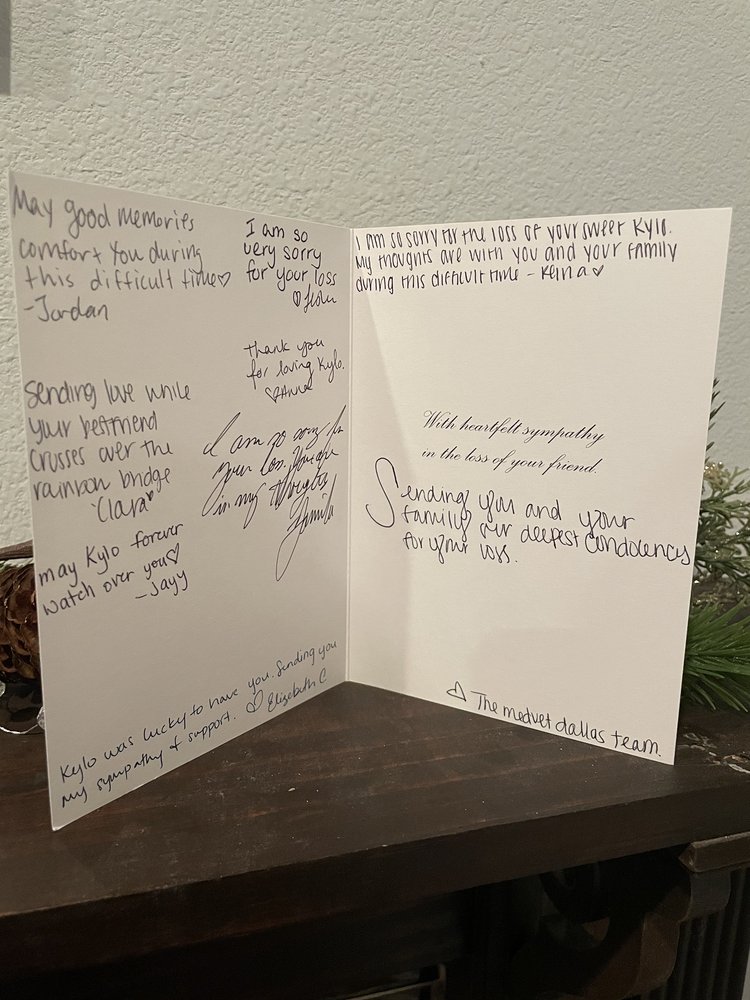 May good memories
comfort you during
this difficult time♡
-Jordan
I am so
very sorry
for your loss
♡
thank you
for loving Kylo.
♡Anna
Sending love while
your bestfriend
crosses over the
rainbow bridge
Clara♥
I am so sorry for
your loss. You are
in my thoughts
may Kylo forever
watch over you♡
-Jayy
Kylo was lucky to have you. Sending you
my sympathy & support. ♡ Elizabeth C.
I am so sorry for the loss of your sweet Kylo.
My thoughts are with you and your family
during this difficult time - Reina♡
With heartfelt sympathy
in the loss of your friend.
Sending you and your
family our deepest condolences
for your loss.
♡ The medvet dallas team.